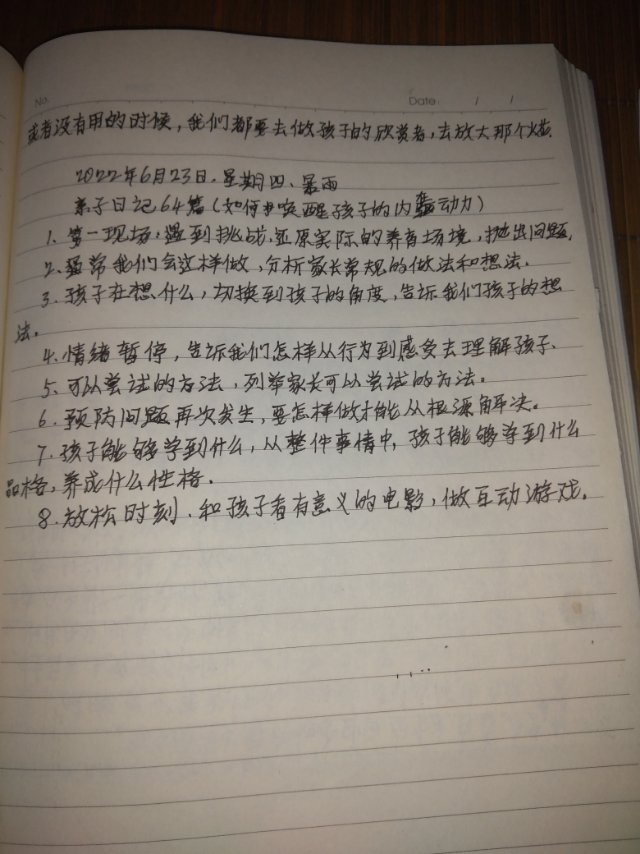 No.
Date: / /
或者没有用的时候，我们都要去做孩子的欣赏者，去放大那个
2022年6月23日.星期四、暴雨
亲子日记64篇(如何唤醒孩子的内驱动力)
1. 第一现场:遇到挑战,还原实际的养育场境,抛出问题,
2. 通常我们会这样做,分析家长常规的做法和想法.
3. 孩子在想什么,切换到孩子的角度,告诉我们孩子的想
法.
4. 情绪暂停,告诉我们怎样从行为到感受去理解孩子.
5. 可以尝试的方法,列举家长可以尝试的方法。
6. 预防问题再次发生,要怎样做才能从根源解决。
7. 孩子能够学到什么,从整件事情中,孩子能够学到什么
品格,养成什么性格.
8. 放松时刻.和孩子看有意义的电影,做互动游戏.